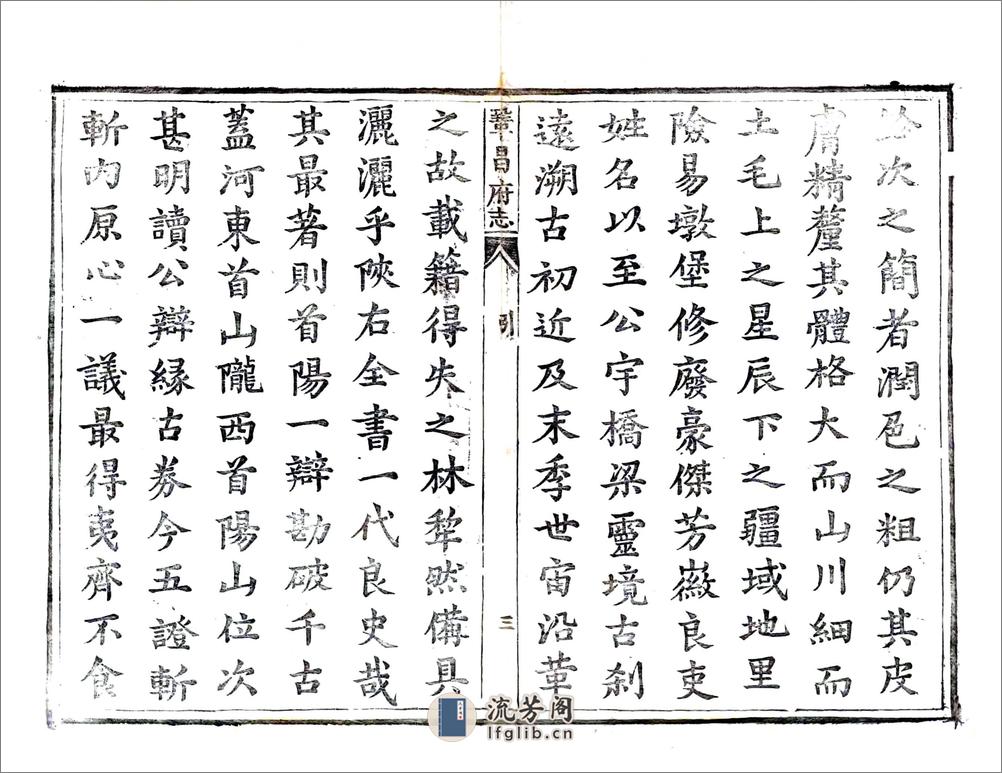 次之簡者潤色之粗仍其皮
膚精釐其體格大而山川細而
土毛上之星辰下之疆域地里
險易墩堡修廢豪傑芳徽良吏
姓名以至公宇橋梁靈境古刹
遠溯古初近及末季世宙沿革
鞏昌府志
引
三
之故載籍得失之林犂然備具
灑灑乎陝右全書一代良史哉
其最著則首陽一辯勘破千古
蓋河東首山隴西首陽山位次
甚明讀公辯緣古券今五證斬
斬內原心一議最得夷齊不食
流芳阁
lfglib.cn